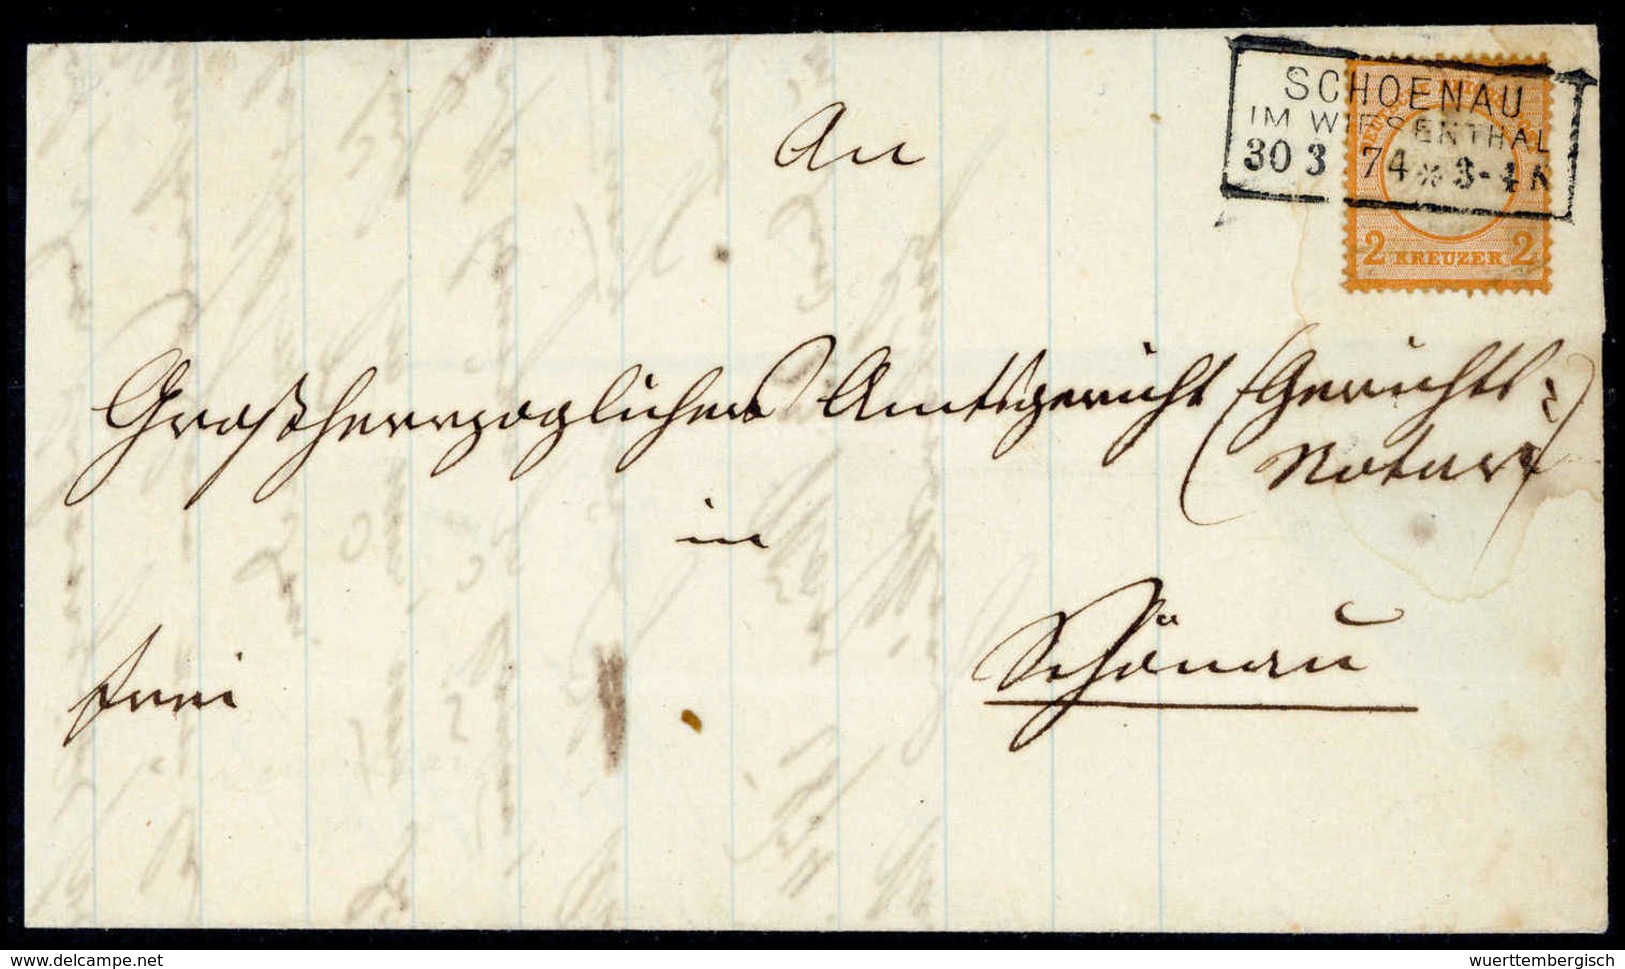 SCHOENAU
IM WIESENTHAL
30 3 74 * 3-4 N
2 KREUZER 2
An
Großherzogliches Amtsgericht (Gerichts-
Notar)
in
Schönau
frei
delcampe.net
wuerttembergisch